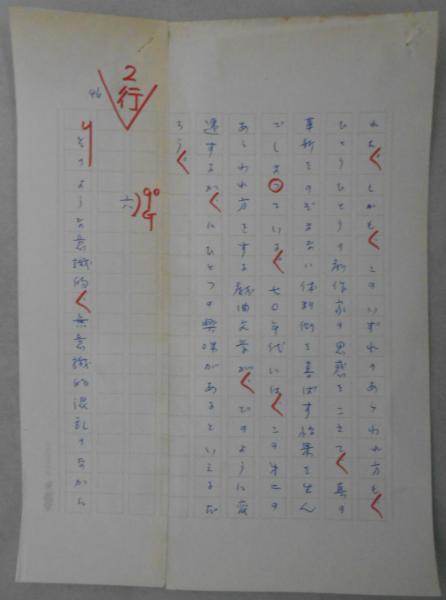 れる。しかも、このいずれのあらわれ方も、
ひとりひとりの劇作家の思惑をこえて、真の
革新をのぞまない体制側を喜ばす結果を生ん
でしまっている。七〇年代には、この第二の
あらわれ方をする戯曲文学が、どのように変
遷するか、にひとつの興味があるといえるだ
ろう。
2行
六
9ºG
46
そのような意識的、無意識的混乱のなかに